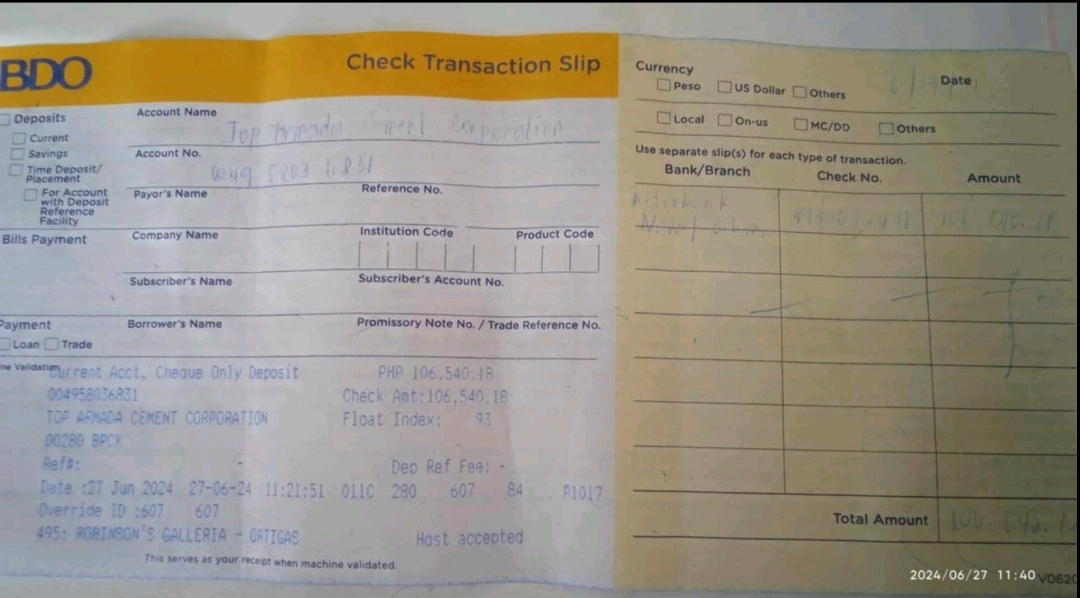 BDO
Check Transaction Slip
Deposits
Current
Savings
Time Deposit/
Placement
For Account
with Deposit
Reference
Facility
Account Name
Top Armada Cement Corporation
Account No.
Payor's Name
Reference No.
Bills Payment
Company Name
Institution Code
Product Code
Subscriber's Name
Subscriber's Account No.
Payment
Loan
Trade
Borrower's Name
Promissory Note No. / Trade Reference No.
ne Validation
Current Acct, Cheque Only Deposit PHP 106,540.18
004958036831 Check Amt:106,540.18
TOP ARMADA CEMENT CORPORATION Float Index: 93
00280 BPCK
Ref#: Dep Ref Fee: -
Date :27 Jun 2024 27-06-24 11:21:51 011C 280 607 84 P1017
Override ID :607 607
495: ROBINSON'S GALLERIA - ORTIGAS Host accepted
This serves as your receipt when machine validated.
Currency
Date
Peso
US Dollar
Others
Local
On-us
MC/DD
Others
Use separate slip(s) for each type of transaction.
Bank/Branch
Check No.
Amount
Total Amount
2024/06/27 11:40
V0620